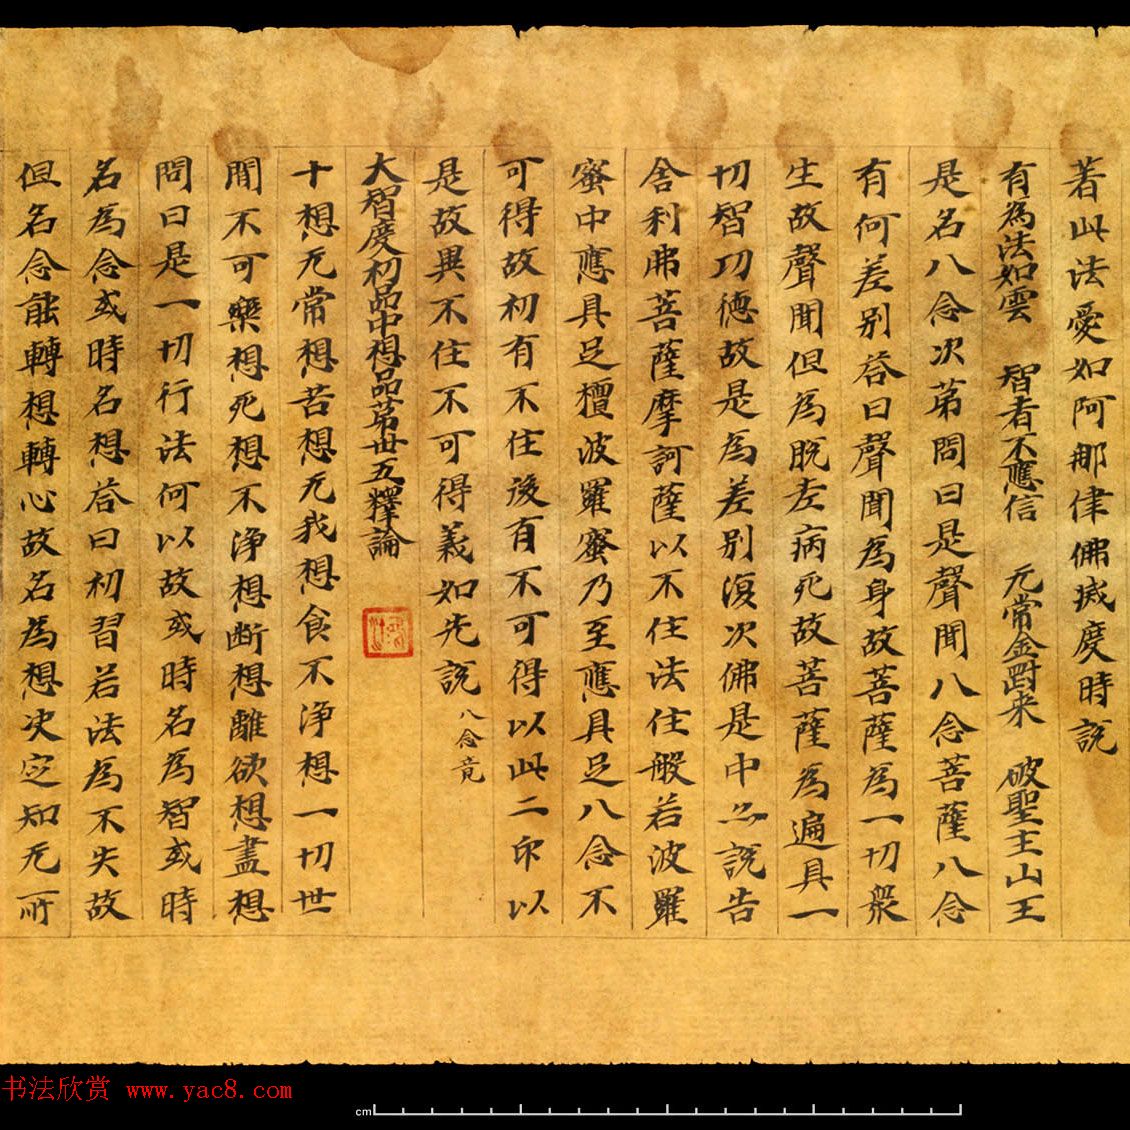 著此法愛如阿那律佛滅度時説
有為法如雲 智者不應信 无常金對来 破聖主山王
是名八念次苐問曰是聲聞八念菩薩八念
有何差别荅曰聲聞為身故菩薩為一切衆
生故聲聞但為脱老病死故菩薩為遍具一
切智功德故是為差别復次佛是中亦説告
舍利弗菩薩摩訶薩以不住法住般若波羅
蜜中應具足檀波羅蜜乃至應具足八念不
可得故初有不住後有不可得以此二印以
是故異不住不可得義如先説 八念竟
大智度初品中想品苐丗五釋論
十想无常想苦想无我想食不淨想一切世
間不可樂想死想不淨想断想離欲想盡想
問曰是一切行法何以故或時名為智或時
名為念或時名想荅曰初習若法為不失故
但名念能轉想轉心故名為想决定知无所
书法欣赏 www.yac8.com
cm